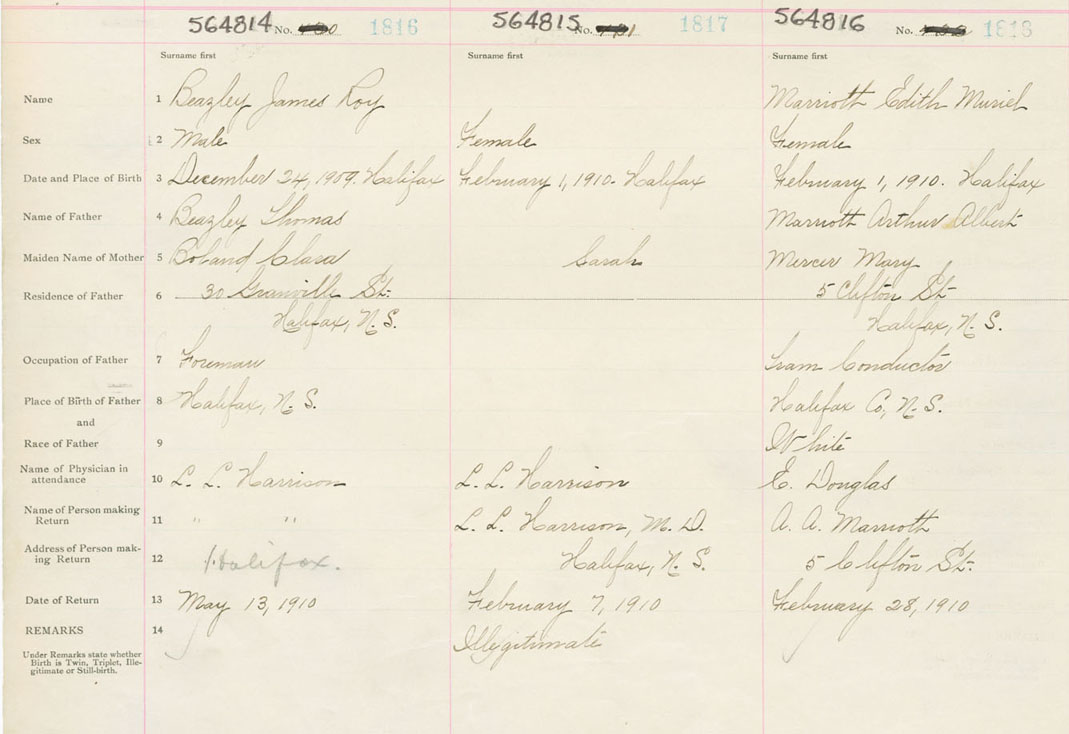 564814 No. 1816 564815 No. 1817 564816 No. 1818
Surname first Surname first Surname first
Name 1 Beazley James Roy Marriott Edith Muriel
Sex 2 Male Female Female
Date and Place of Birth 3 December 24, 1909. Halifax February 1, 1910. Halifax February 1, 1910. Halifax
Name of Father 4 Beazley Thomas Marriott Arthur Albert
Maiden Name of Mother 5 Boland Clara Sarah Mercer Mary
Residence of Father 6 30 Granville St. 5 Clifton St.
Halifax, N.S. Halifax, N.S.
Occupation of Father 7 Foreman Tram Conductor
Place of Birth of Father 8 Halifax, N.S. Halifax Co, N.S.
and
Race of Father 9 White
Name of Physician in
attendance 10 L. L. Harrison L. L. Harrison E. Douglas
Name of Person making
Return 11 " " L. L. Harrison, M.D. A. A. Marriott
Address of Person mak-
ing Return 12 Halifax. Halifax, N.S. 5 Clifton St.
Date of Return 13 May 13, 1910 February 7, 1910 February 28, 1910
REMARKS 14 Illegitimate
Under Remarks state whether
Birth is Twin, Triplet, Ille-
gitimate or Still-birth.